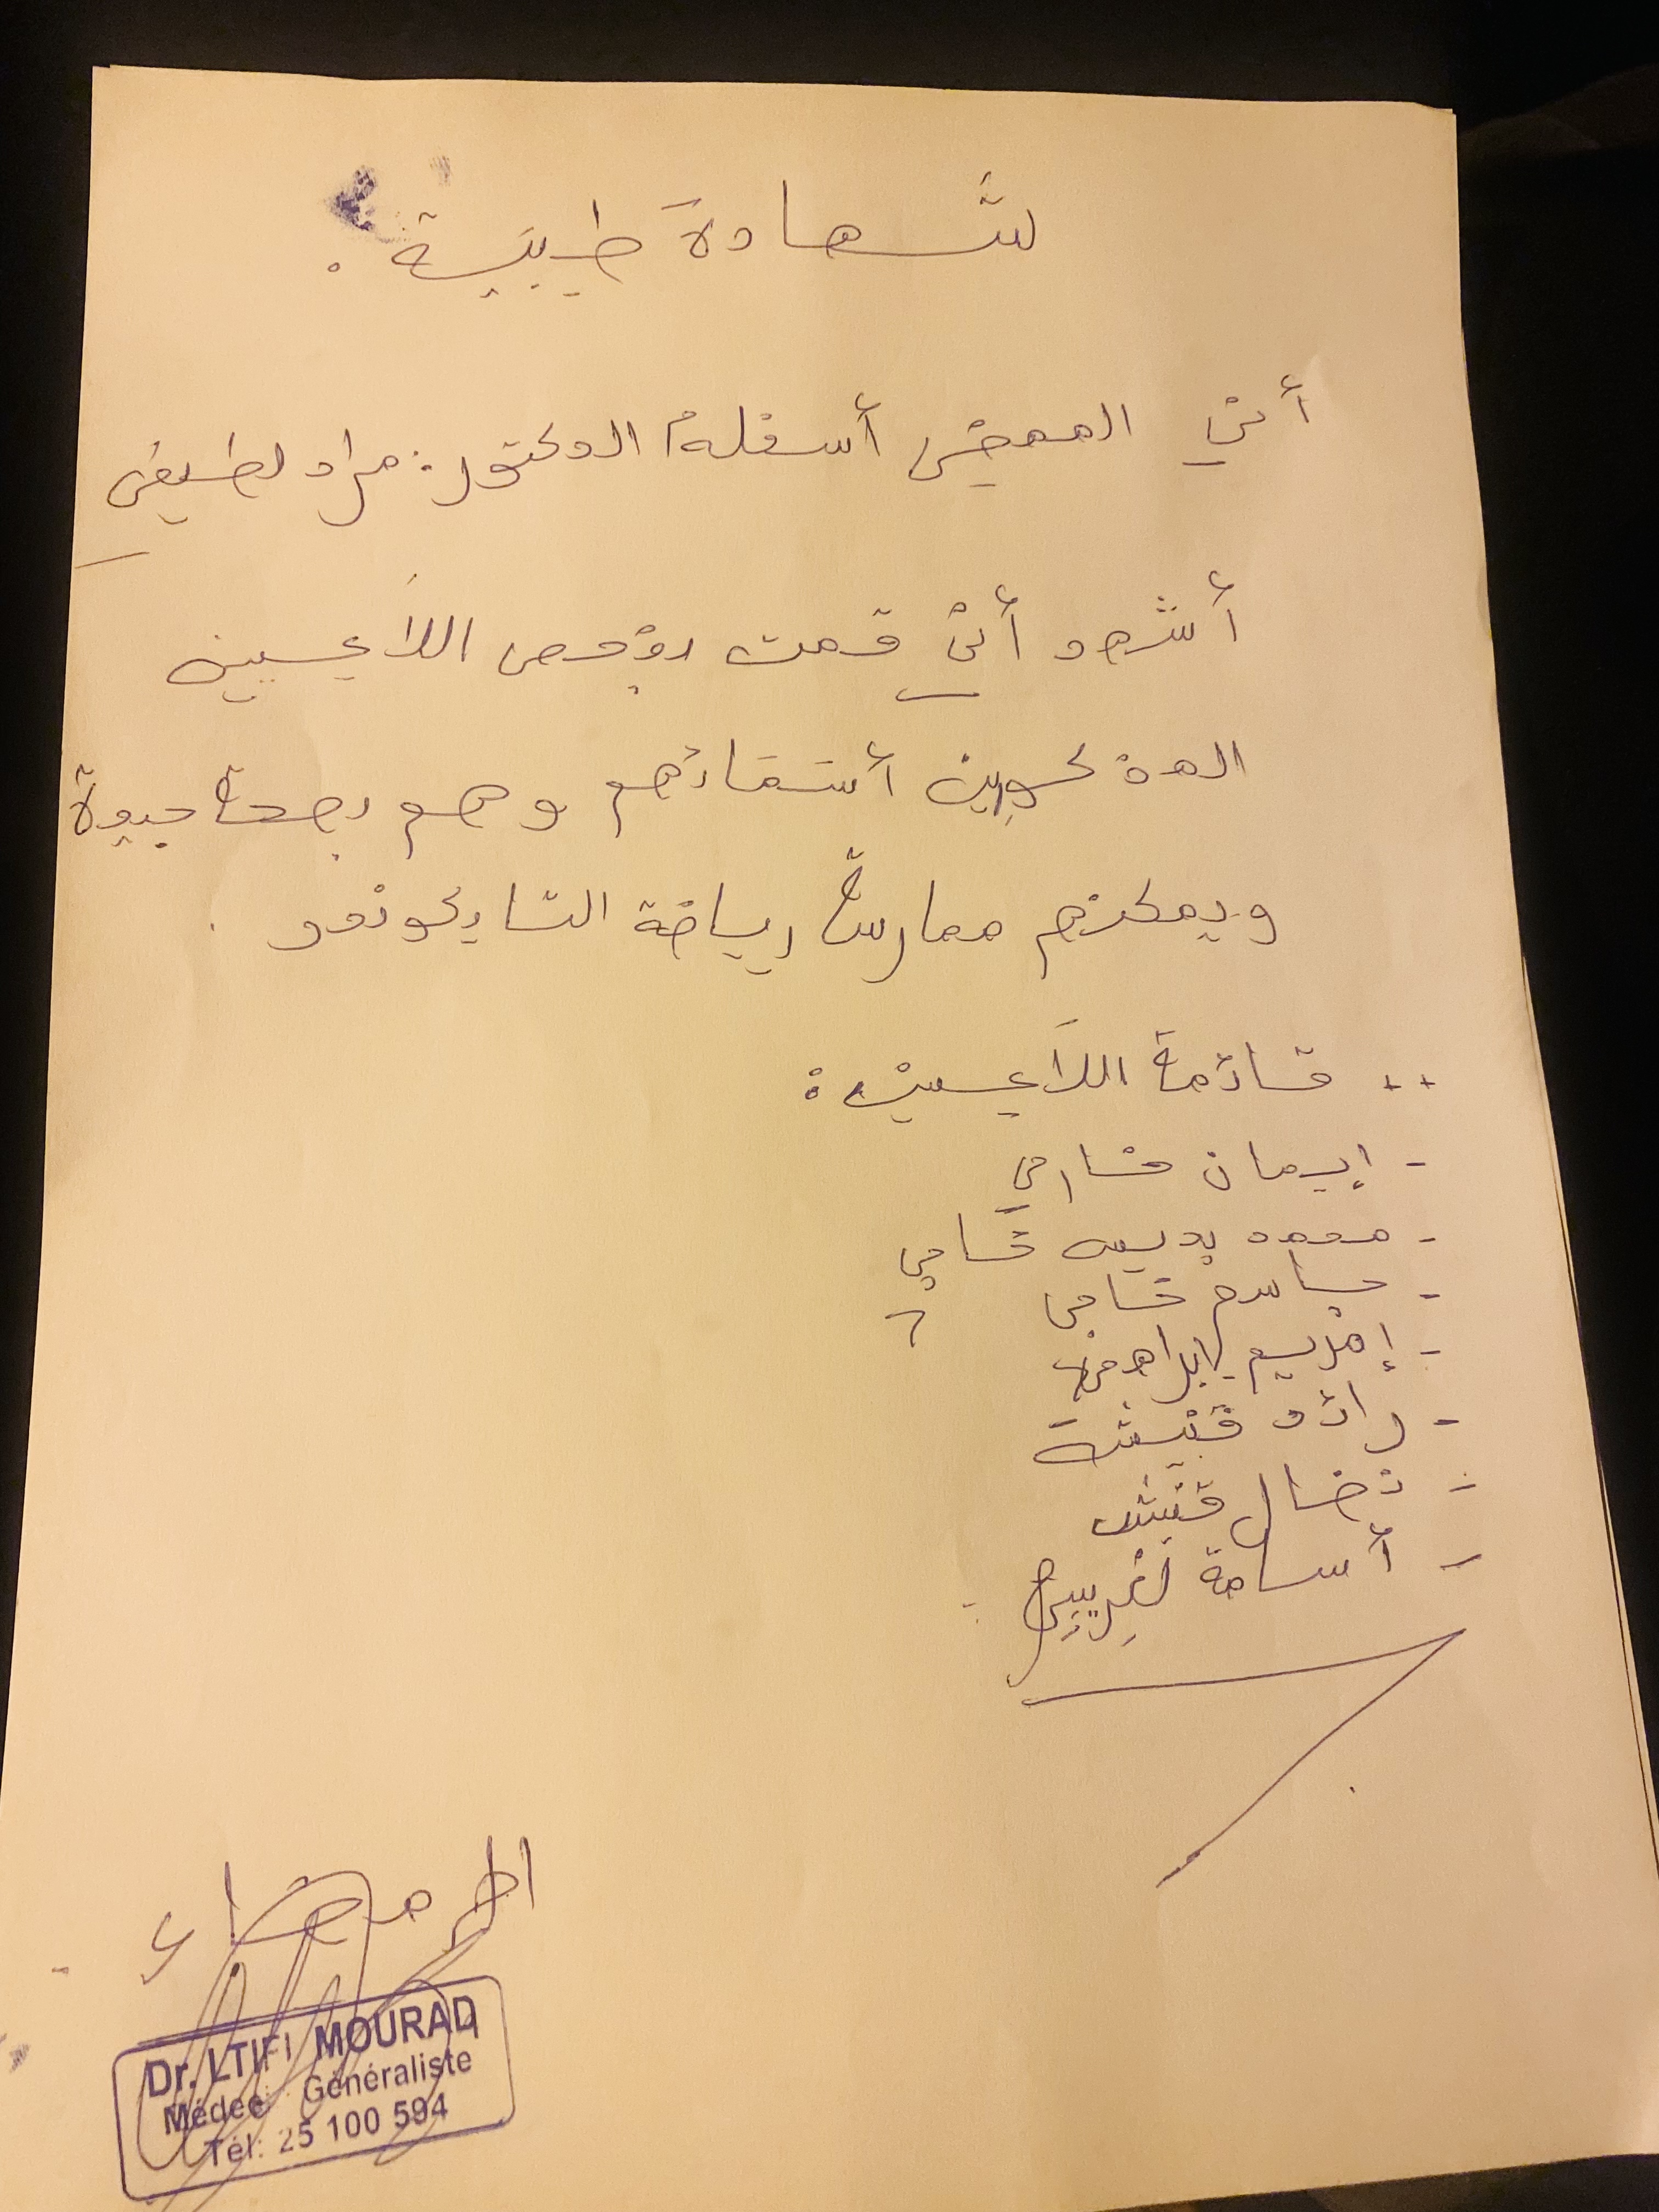 شهادة طبية .
أني الممضي أسفله الدكتور : مراد لطيفي
أشهد أني قمت بفحص اللاعبين
المذكورين أسمائهم وهم بصحة جيدة
ويمكنهم ممارسة رياضة التايكوندو .
++ قائمة اللاعبين :
- إيمان
- محمد
-
-
- رائد قنيشة
- نضال
- أسامة
الإمضاء
Dr. LTIFI MOURAD
Médec Généraliste
Tél: 25 100 594